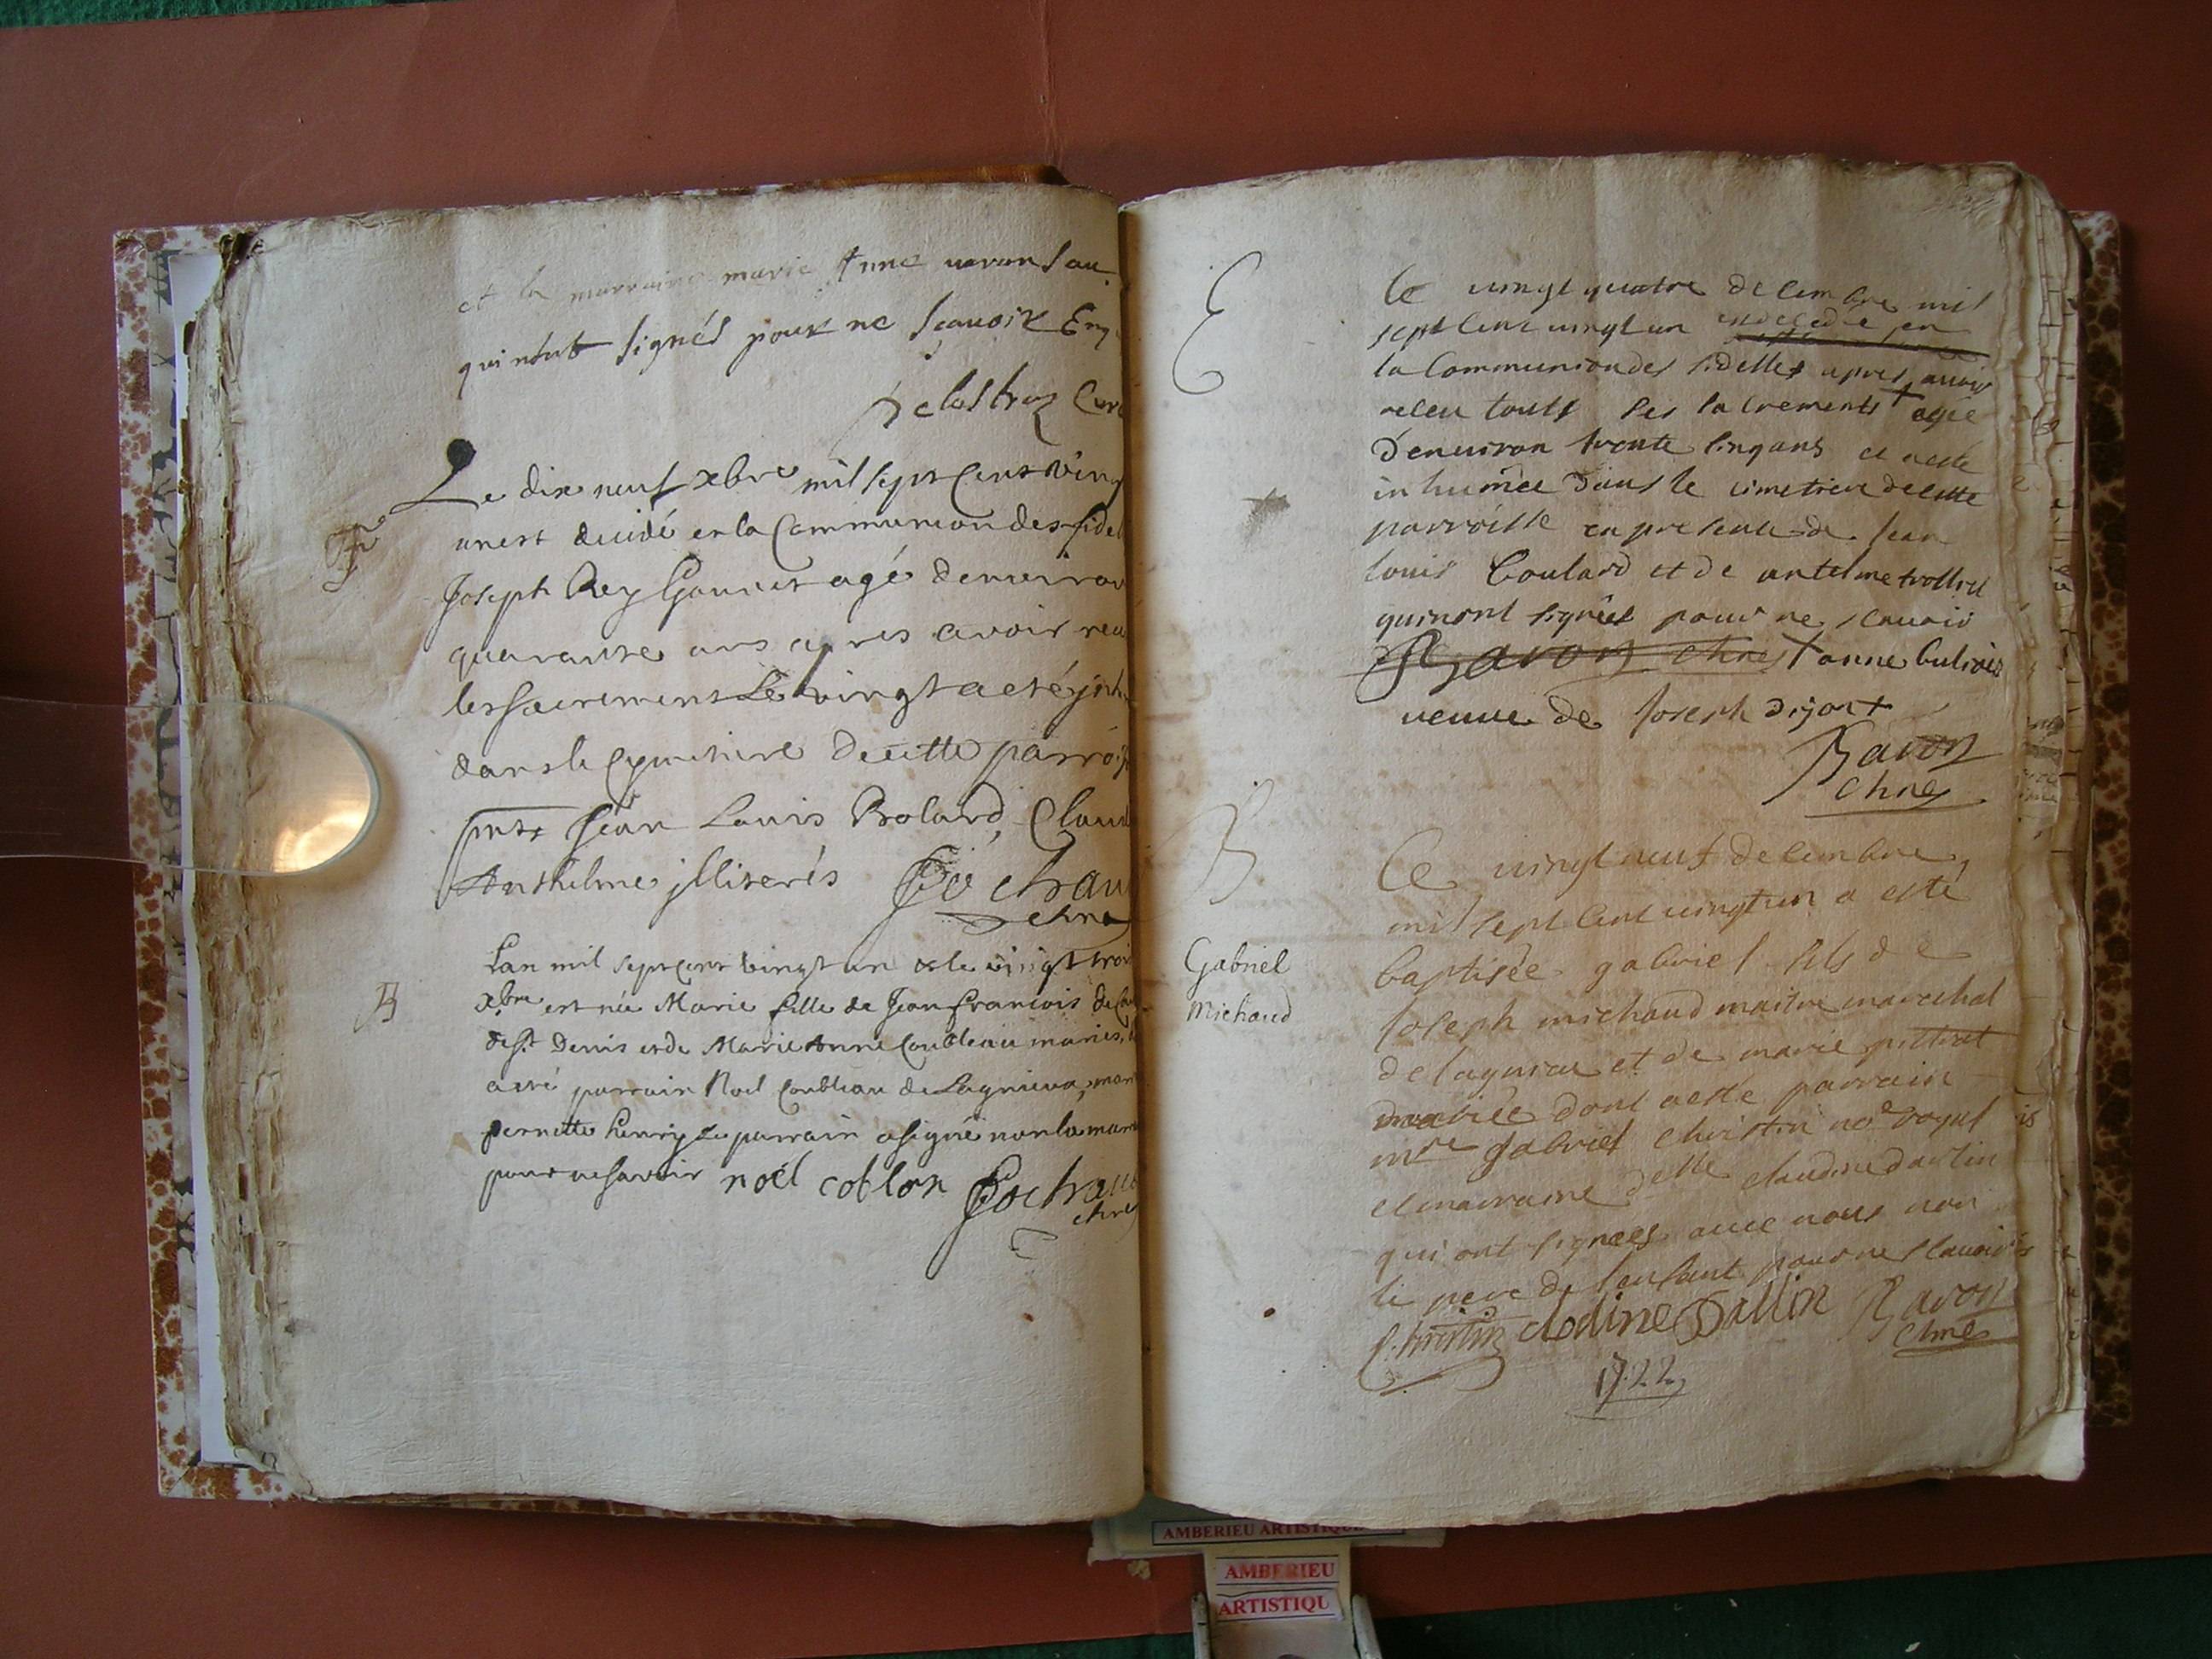 et la marraine marie Anne
qui n'ont signés pour ne sçavoir
Delastraz Curé
Le dix neuf xbre mil sept cens ving
un est decidé en la Communion des fidel
Joseph Rey Gonnet agé denviron
quarante ans apres avoir receu
les sacremens Le vingt a eté
dans le Cymetiere de cette parroi
pnts Jean Louis Bolard, Claud
Anthelme jlliterés Pochrau
chne
B
Lan mil sept cens vingt un & le vingt trois
xbre est née Marie fille de Jean francois
de St Denis et de Marie Anne Coubleau mariés,
a eté parrain Noel Coubleau de Lagnieux, mar
pernette henry Le parrain a signé non la mar
pour ne savoir noël coblon Pochrau
chne
E
Ce vingt quatre decembre mil
sept cent vingt un est decedée en
la Communion des fidelles apres avoir
receu touts ses sacrements + agée
d'environ trente cinq ans et a esté
inhumée dans le cimetiere de cette
parroisse en presence de Jean
louis boulard et de antelme trolliet
qui n'ont signées pour ne scavoir
Ravon chne + anne
veuve de Joseph dijon +
Ravon
chne
B
Gabriel
Michaud
Ce vingt neuf decembre
mil sept cent vingt un a esté
baptisée gabriel fils de
Joseph michaud maitre marechal
de lagnieu et de marie pittiot
mariée dont a este parrain
mre gabriel christin nore royal
et marraine delle claudine dallin
qui ont signees avec nous non
le pere de l'enfant pour ne scavoir
Christin clodine Dallin Ravon
chne
1722
AMBERIEU ARTISTIQUE
AMBERIEU
ARTISTIQU